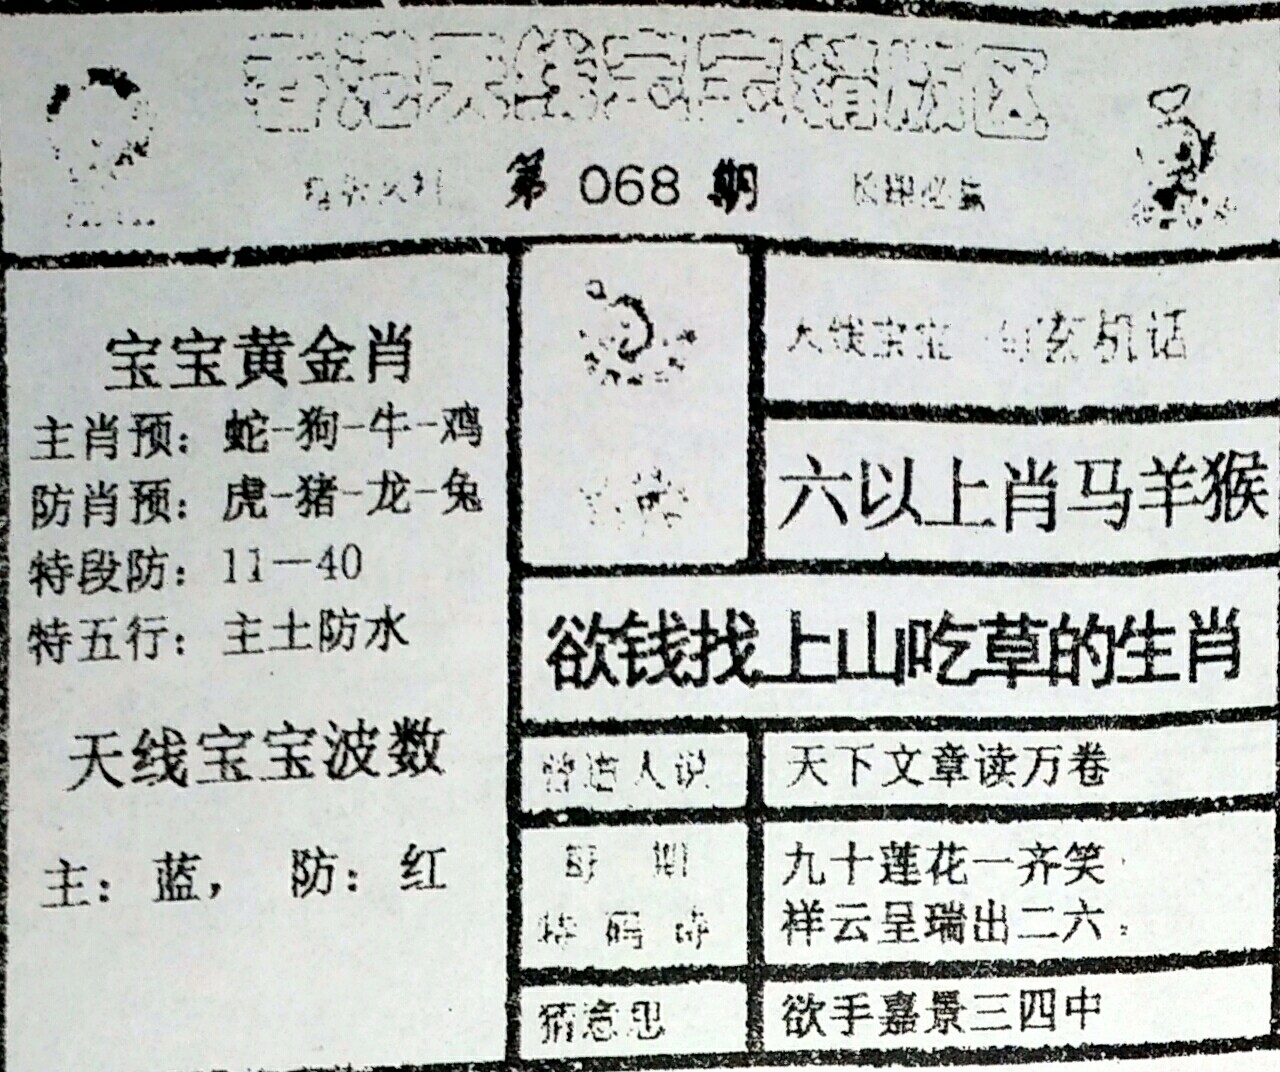 香港天线宝宝精版区
第 068 期
长印必赢
宝宝黄金肖
主肖预：蛇-狗-牛-鸡
防肖预：虎-猪-龙-兔
特段防：11—40
特五行：主土防水
天线宝宝波数
主：蓝， 防：红
天线宝宝 一句玄机话
六以上肖马羊猴
欲钱找上山吃草的生肖
曾道人说
天下文章读万卷
特码诗
九十莲花一齐笑
样云呈瑞出二六
猜意思
欲手嘉景三四中